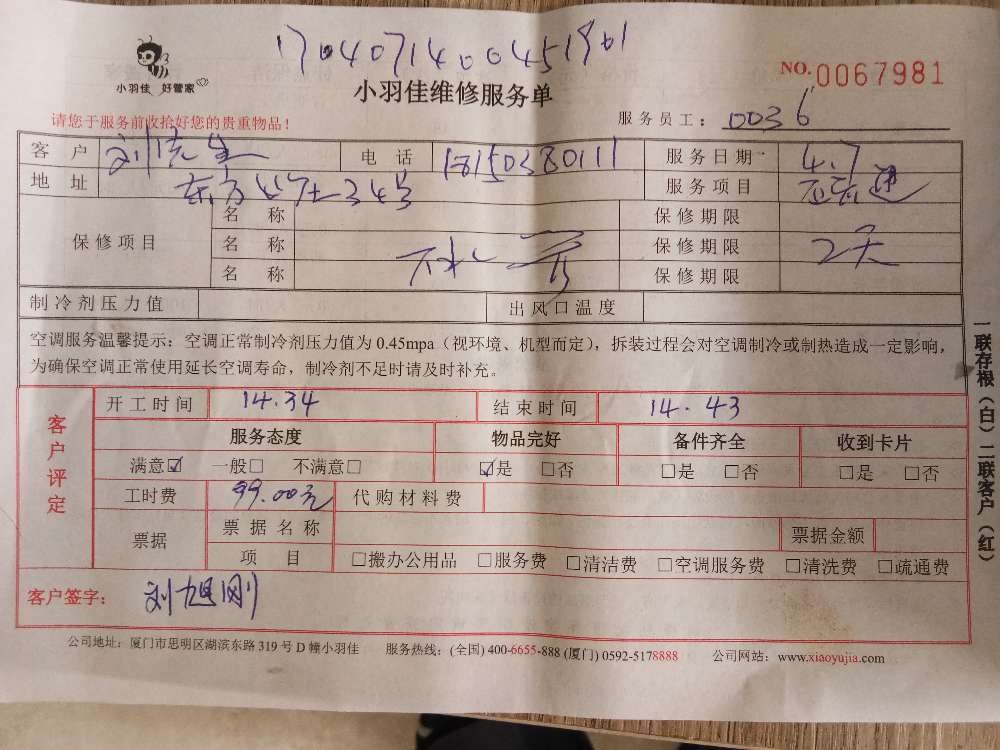 17040714000451901
小羽佳 好管家
小羽佳维修服务单
NO.0067981
请您于服务前收拾好您的贵重物品！
服务员工：0036
客 户 刘先生 电 话 18150380111 服务日期 4.7
地 址 服务项目
保修项目
名 称 保修期限
名 称 保修期限 2天
名 称 保修期限
制冷剂压力值 出风口温度
空调服务温馨提示：空调正常制冷剂压力值为 0.45mpa（视环境、机型而定），拆装过程会对空调制冷或制热造成一定影响，
为确保空调正常使用延长空调寿命，制冷剂不足时请及时补充。
客户评定
开工时间 14.34 结束时间 14.43
服务态度 物品完好 备件齐全 收到卡片
满意☑ 一般□ 不满意□ ☑是 □否 □是 □否 □是 □否
工时费 99.00元 代购材料费
票据 票据名称 票据金额
项 目 □搬办公用品 □服务费 □清洁费 □空调服务费 □清洗费 □疏通费
客户签字： 刘旭刚
公司地址：厦门市思明区湖滨东路 319 号 D 幢小羽佳 服务热线：(全国) 400-6655-888 (厦门) 0592-5178888 公司网站：www.xiaoyujia.com
一联存根（白）二联客户（红）